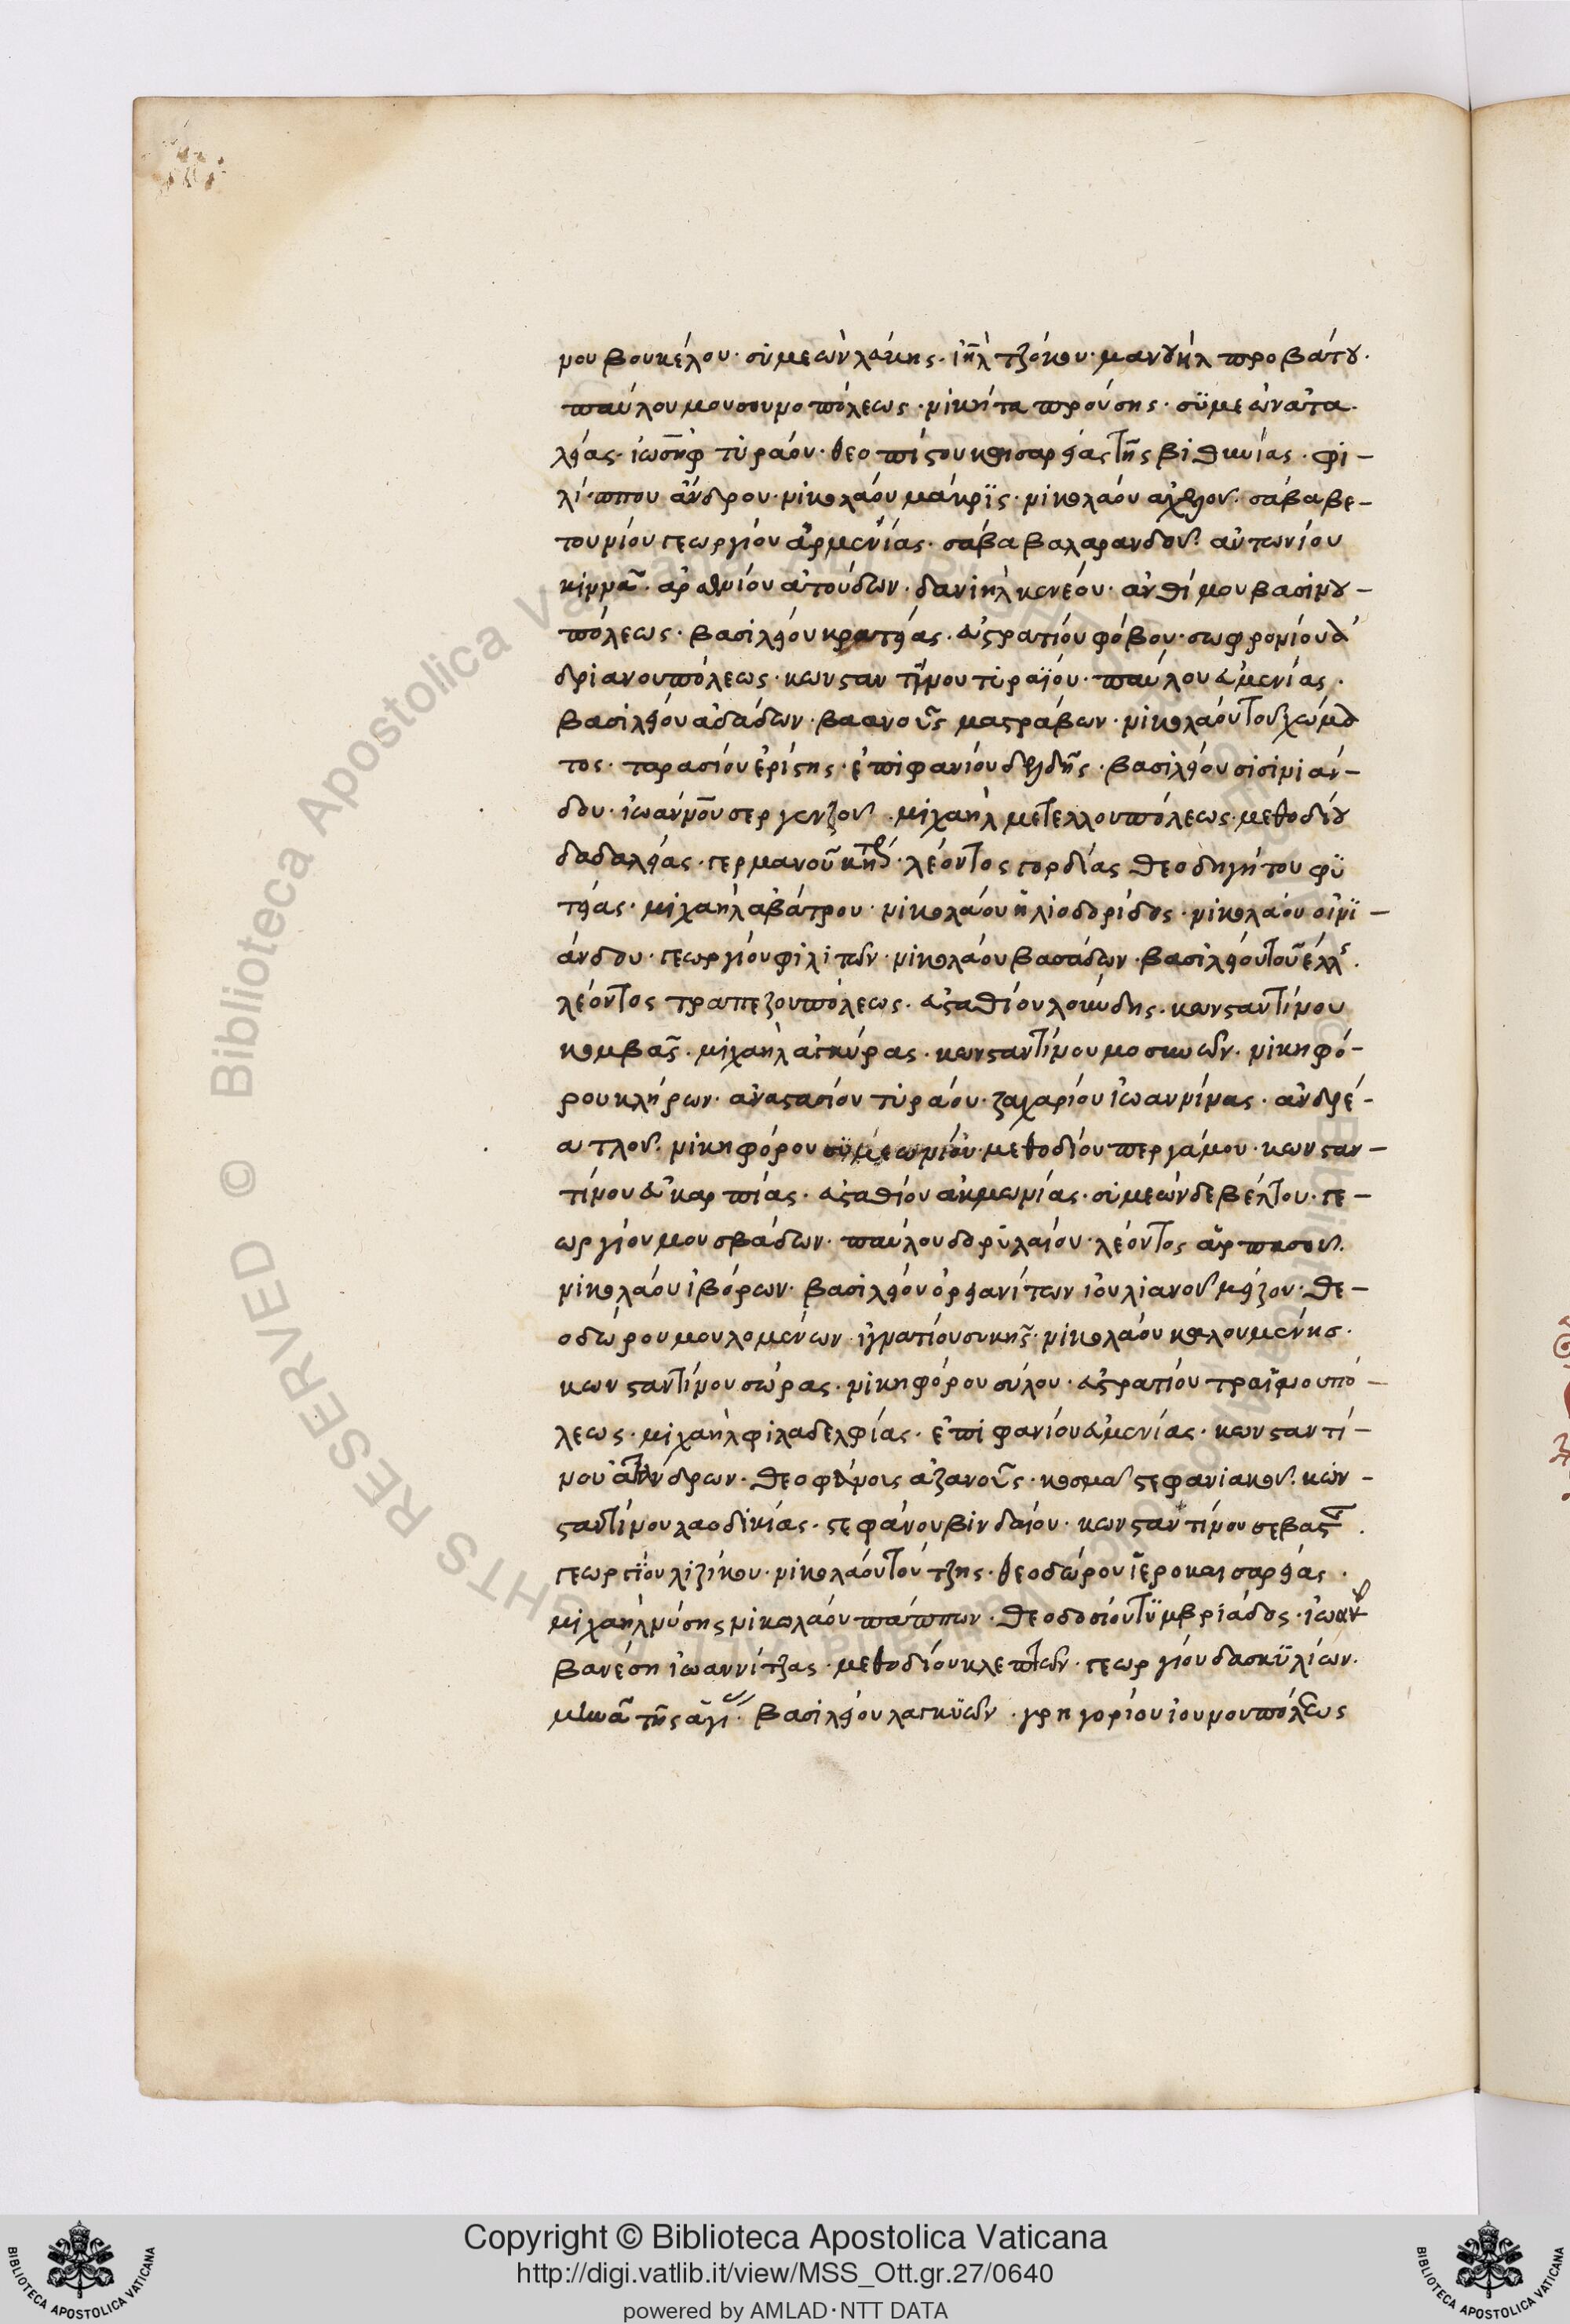 νου βουκέλου· συμεὼν λάκης· ἰηλ τζόκου· μανουὴλ προβάτου·
παύλου μουσουνοπόλεως· νικήτα προύσης· συμεὼν ἀτα
λείας· ἰωσὴφ τυράου· θεοπίστου καισαρείας τῆς βιθυνίας· φι-
λίππου ἄνδρου· νικολάου μάκρις· νικολάου σάβα βε-
τουνίου γεωργίου ἀρμενίας· σάβα βαλαρανδοῦ· ἀντωνίου
κιννᾶ· ἀτούδων· δανιὴλ κενέου· ἀνθίμου βασινου-
πόλεως· βασιλείου κρατείας· εὐστρατίου φόβου· σωφρονίου ἀ
δριανουπόλεως· κωνσταντίνου τυραΐου· παύλου εὐμενίας·
βασιλείου ἀδάδων· βαανοῦς μαστράβων· νικολάου τοῦ χώμα
τος· ταρασίου ἐρίστης· ἐπιφανίου βασιλείου σισινιάν-
δου· ἰωάννου σεργενζοῦ· μιχαὴλ μετελλουπόλεως· μεθοδίου
δαδαλείας· γερμανοῦ λέοντος γορδίας θεοδηγήτου φυ
τείας· μιχαὴλ ἀβάτρου· νικολάου ἡλιοδορίδος· νικολάου σινι-
άνδου· γεωργίου φιλίτων· νικολάου βασάδων· βασιλείου τοῦ ἑλλ
λέοντος τραπεζουπόλεως· εὐσταθίου λοκύδης· κωνσταντίνου
κομβᾶς· μιχαὴλ ἀγκύρας· κωνσταντίνου μοσκυῶν· νικηφό-
ρου κλήρων· ἀναστασίου τυράου· ζαχαρίου ἰωαννίνας· ἀνδρέ-
α τλοῦ· νικηφόρου συμεωνίου· μεθοδίου περγάμου· κωνσταν-
τίνου εὐκαρπίας· εὐσταθίου ἀκμωνίας· συμεὼν δεβέλτου· γε-
ωργίου μουσβάδων· παύλου δορυλαίου· λέοντος ἁρπασοῦ·
νικολάου ἰβόρων· βασιλείου ὀρφανίτων ἰουλιανοῦ μείζου· θε-
οδώρου μουλομένων· ἰγνατίου συκῆς· νικολάου καλουμένης·
κωνσταντίνου σώρας· νικηφόρου σύλου· εὐστρατίου τραϊανουπό-
λεως· μιχαὴλ φιλαδελφίας· ἐπιφανίου εὐμενίας· κωνσταντί-
νου θεοφάνους ἀζανοῦς· κοσμᾶ στεφανιακοῦ· κων-
σταντίνου λαοδικίας· στεφάνου βινδαίου· κωνσταντίνου σεβαστ
γεωργίου λιζίκου· νικολάου τούτζης· θεοδώρου ἱεροκαισαρείας·
μιχαὴλ νύσης νικολάου πάππων· θεοδοσίου τυμβριάδος· ἰωάν
βανέση ἰωαννίτζας· μεθοδίου κλεπτῶν· γεωργίου δασκυλίων·
μηνᾶ τῆς ἁγι βασιλείου λαγκυῶν· γρηγορίου ἰουνουπόλεως
Copyright © Biblioteca Apostolica Vaticana
http://digi.vatlib.it/view/MSS_Ott.gr.27/0640
powered by AMLAD·NTT DATA